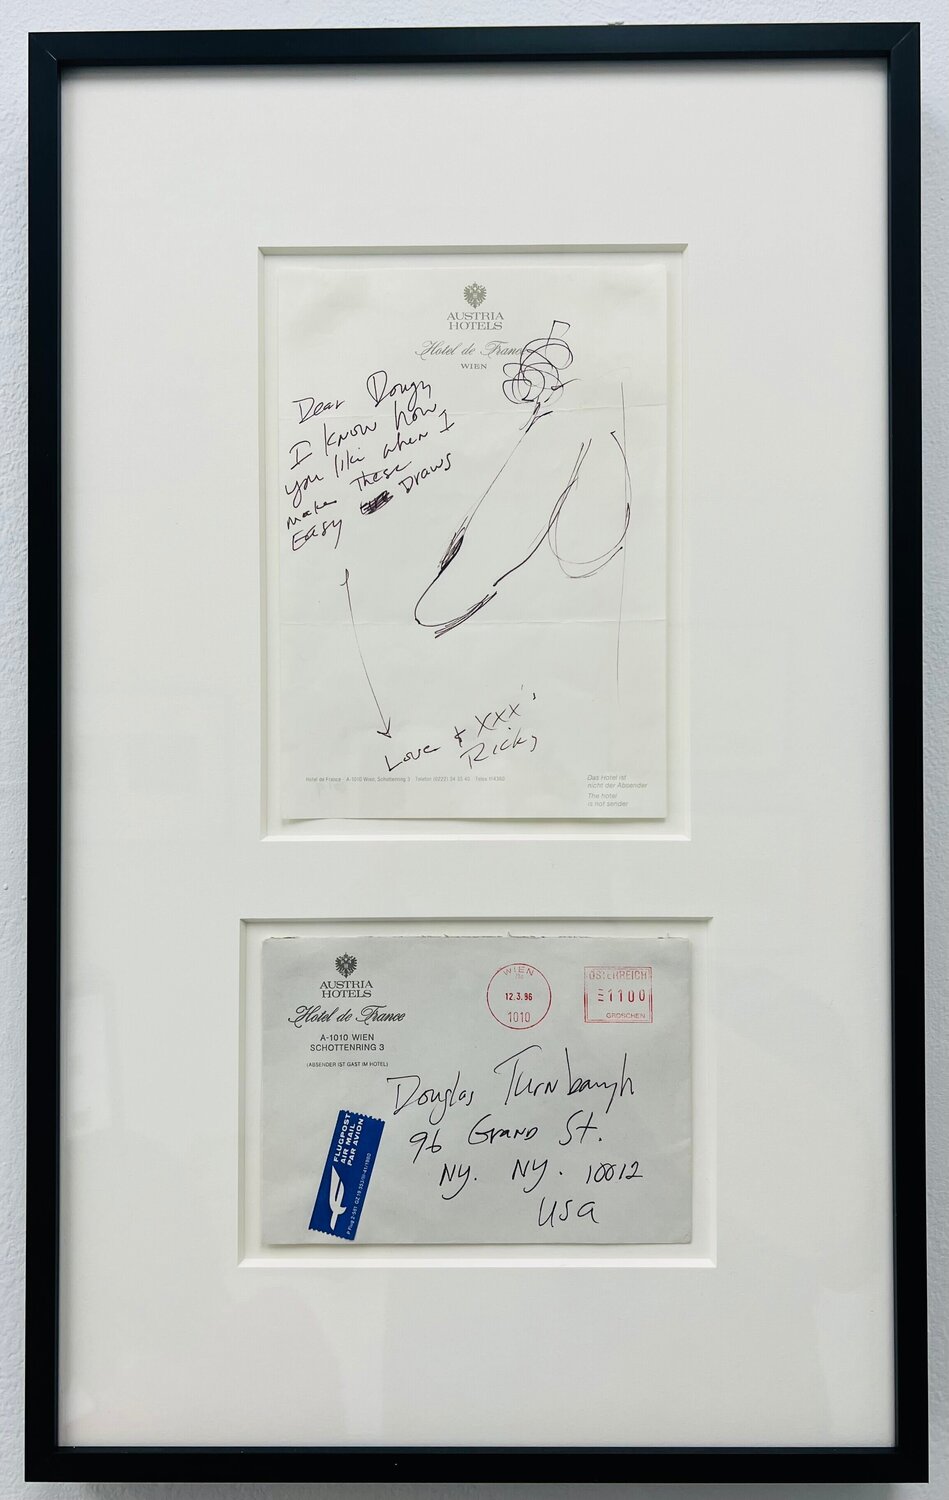 AUSTRIA
HOTELS
Hotel de France
WIEN
Dear Dougy
I know how
you like when I
make these
Easy Draws
Love + XXX's
Ricky
Hotel de France · A-1010 Wien, Schottenring 3 · Telefon (0222) 34 35 40 · Telex 114360
Das Hotel ist
nicht der Absender
The hotel
is not sender
AUSTRIA
HOTELS
Hotel de France
A-1010 WIEN
SCHOTTENRING 3
(ABSENDER IST GAST IM HOTEL)
WIEN
12.3.96
1010
ÖSTERREICH
1100
GROSCHEN
Douglas Turnbaugh
96 Grand St.
NY. NY. 10012
USA
FLUGPOST
AIR MAIL
PAR AVION